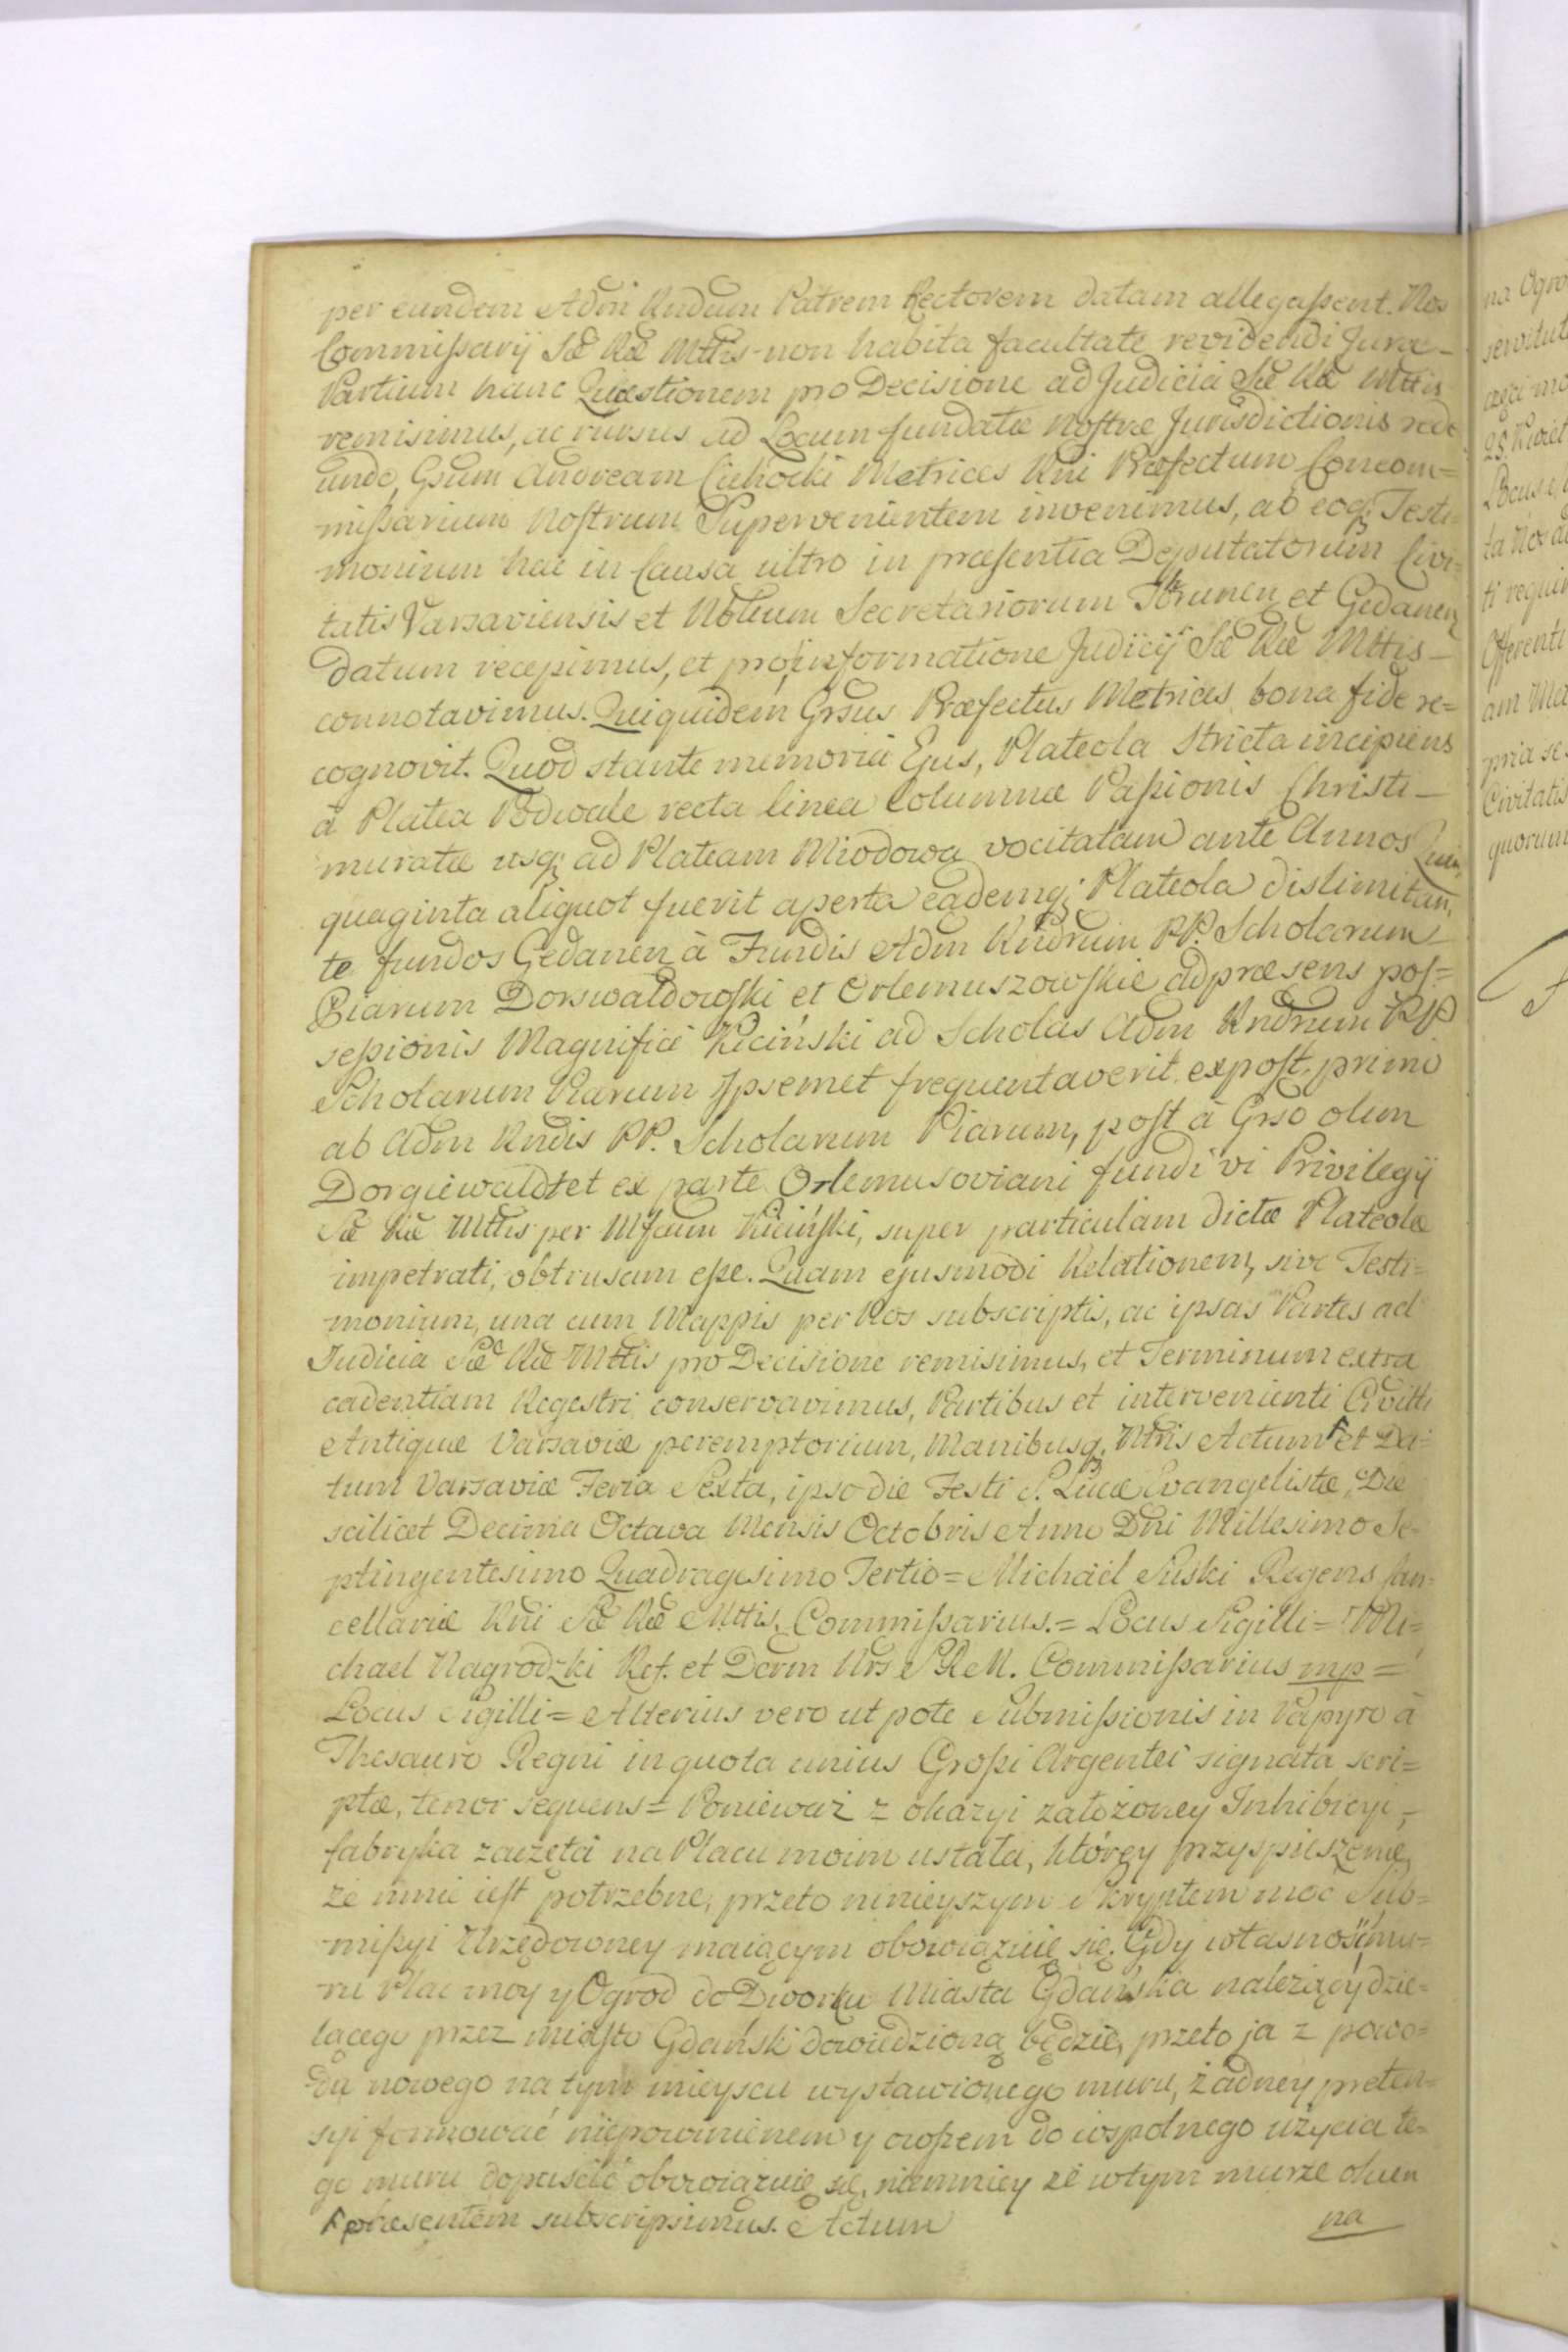 per eundem Adm Rndum Patrem Rectorem datam allegassent. Nos
Commissarij Sæ Ræ Mttis non habita facultate revidendi Jura
Partium hanc Quæstionem pro Decisione ad Judicia Sæ Ræ Mttis
remisimus, ac rursus ad Locum fundatæ Nostræ Jurisdictionis rede
undo, Gsum Andream Cichocki Metrices Rni Præfectum Concom=
missarium Nostrum Supervenientem invenimus, ab eoq; Testi
monium hac in Causa ultro in præsentia Deputatorum Civi=
tatis Varsaviensis et Nobilium Secretariorum Thrunen et Gedanen
datum recepimus, et pro informatione Judicij Sæ Ræ Mttis
connotavimus. Quiquidem Grsus Præfectus Metrices bona fide re=
cognovit. Quod stante memoria Ejus, Plateola Stricta incipiens
à Platea Podwale recta linea Columnæ Passionis Christi
muratæ usq; ad Plateam Miodowa vocitatam ante Annos Quin
quaginta aliquot fuerit aperta eademq; Plateola dislimitan
te fundos Gedanen à Fundis Adm Rndrum PP. Scholarum
Piarum Dorswaldowski et Orlemuszowskie adpræsens pos=
sessionis Magnifici Kiciński ad Scholas Adm Rndrum PP
Scholarum Piarum Ipsemet frequentaverit, expost primo
ab Adm Rndis PP. Scholarum Piarum, post à Grso olim
Dorgiewaldt et ex parte Orlemusoviani fundi vi Privilegij
Sæ Ræ Mttis per Mfcum Kiciński, super particulam dictæ Plateolæ
impetrati, obtrusam esse. Quam ejusmodi Relationem, sive Testi=
monium, una cum Mappis per Nos subscriptis, ac ipsas Partes ad
Judicia Sæ Ræ Mttis pro Decisione remisimus, et Terminum extra
cadentiam Regestri conservavimus, Partibus et intervenienti Civitti
Antiquæ Varsaviæ peremptorium, Manibusq; Ntris Actum et Da=
tum Varsaviæ Feria Sexta, ipso die Festi S. Lucæ Evangelistæ, Die
scilicet Decima Octava Mensis Octobris Anno Dni Millesimo Se=
ptingentesimo Quadragesimo Tertio = Michäel Suski Regens Can=
cellariæ Rni Sæ Ræ Mttis, Commissarius. = Locus Sigilli = Mi=
chael Nagrodzki Ref. et Dcrm Nrs S.R.M. Commissarius mp =
Locus Sigilli = Alterius vero ut pote Submissionis in Papyro à
Thesauro Regni in quota unius Grossi Argentei signata scri=
ptæ, tenor sequens = Ponieważ z okazyi założoney Inhibicyi,
fabryka zaczęta na Placu moim ustała, którey przyspieszenie,
że mnie iest potrzebne, przeto ninieyszym Skryptem moc Sub=
missyi Urzędowney maiącym obowiązuię się. Gdy własność mu=
ru Plac moy y Ogrod do Dworku Miasta Gdańska należący dzie=
lącego przez miasto Gdańsk dowiedzioną będzie, przeto ja z powo=
du nowego na tym mieyscu wystawionego muru, żadney preten=
syi formować niepowinienem y owszem do wspolnego użycia te=
go muru dopuścić obowiązuię się, niemniey że wtym murze okien
præsentem subscripsimus. Actum
na